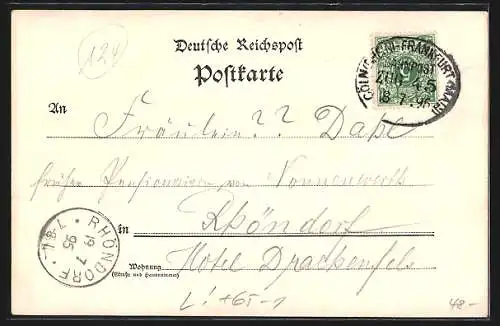 124
Deutsche Reichspost
Postkarte
CÖLN(RHEIN)-FRANKFURT(MAIN)
BAHNPOST
ZUG 45
18 7 95
An Fräulein ?? Dahl
früher Pensionairin von Nonnenwerth
in Rhöndorf
Hotel Drachenfels
Wohnung
(Straße und Hausnummer)
RHÖNDORF
19 7
95
7-8V.
L! +65-1
48.-